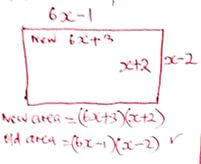 6x-1
New 6x+3
x+2 x-2
New area = (6x+3)(x+2)
old area = (6x-1)(x-2) ✓